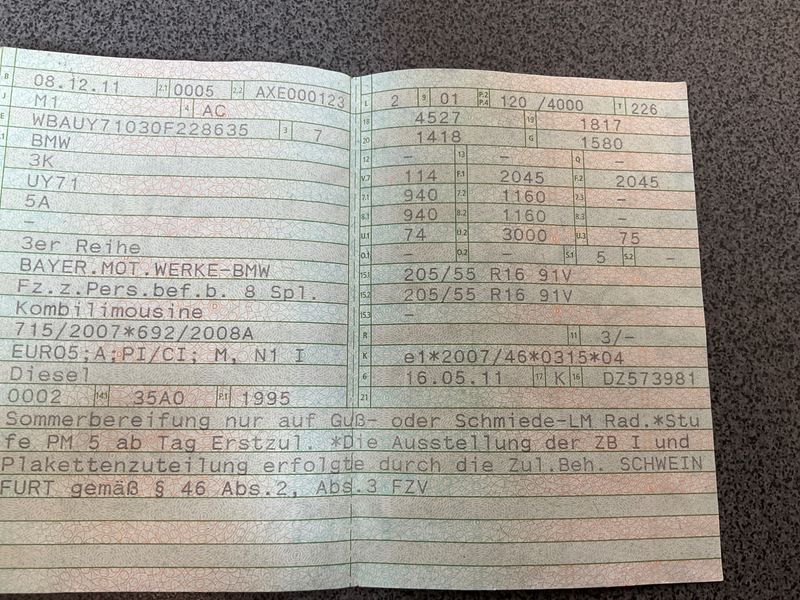 B 08.12.11 2.1 0005 2.2 AXE000123
J M1 4 AC
E WBAUY71030F228635 3 7
BMW
3K
UY71
5A
–
3er Reihe
BAYER.MOT.WERKE-BMW
Fz.z.Pers.bef.b. 8 Spl.
Kombilimousine
715/2007*692/2008A
EURO5;A;PI/CI; M, N1 I
Diesel
0002 14.1 35A0 P.1 1995
L 2 9 01 P.2 P.4 120 /4000 T 226
18 4527 19 1817
20 1418 G 1580
12 – 13 – Q –
V.7 114 F.1 2045 F.2 2045
7.1 940 7.2 1160 7.3 –
8.1 940 8.2 1160 8.3 –
U.1 74 U.2 3000 U.3 75
O.1 – O.2 – S.1 5 S.2 –
15.1 205/55 R16 91V
15.2 205/55 R16 91V
15.3 –
R 11 3/–
K e1*2007/46*0315*04
6 16.05.11 17 K 16 DZ573981
21
Sommerbereifung nur auf Guß- oder Schmiede-LM Rad.*Stu
fe PM 5 ab Tag Erstzul. *Die Ausstellung der ZB I und
Plakettenzuteilung erfolgte durch die Zul.Beh. SCHWEIN
FURT gemäß § 46 Abs.2, Abs.3 FZV